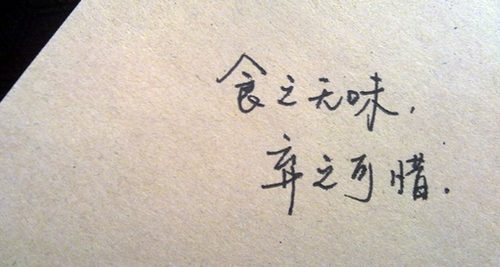 食之无味，
弃之可惜.